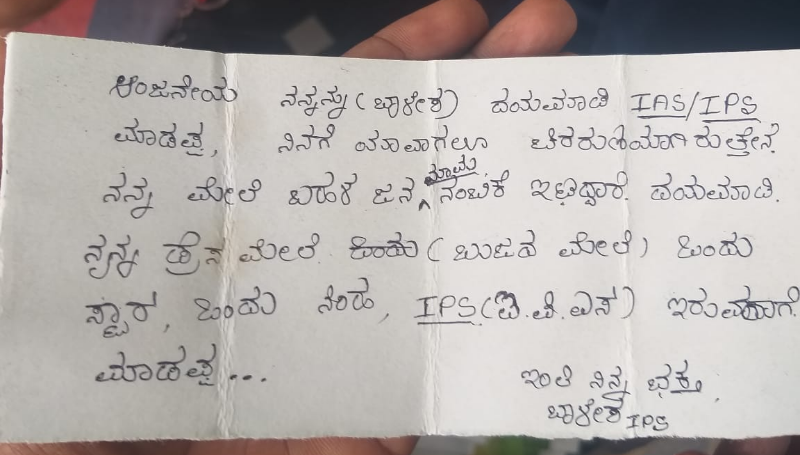 ಆಂಜನೇಯ ನನ್ನನ್ನು (ಬಾಳೇಶ) ದಯಮಾಡಿ IAS/IPS
ಮಾಡಪ್ಪ, ನಿನಗೆ ಯಾವಾಗಲೂ ಚಿರಋಣಿಯಾಗಿರುತ್ತೇನೆ.
ನನ್ನ ಮೇಲೆ ಬಹಳ ಜನ ನಂಬಿಕೆ ಇಟ್ಟಿದ್ದಾರೆ. ದಯಮಾಡಿ.
ನನ್ನ ಡ್ರೆಸ ಮೇಲೆ ಒಂದು (ಬುಜದ ಮೇಲೆ) ಒಂದು
ಸ್ಟಾರ, ಒಂದು ಸಿಂಹ, IPS (ಐ.ಪಿ.ಎಸ) ಇರುವಹಾಗೆ.
ಮಾಡಪ್ಪ...
ಇಂತಿ ನಿನ್ನ ಭಕ್ತ,
ಬಾಳೇಶ IPS